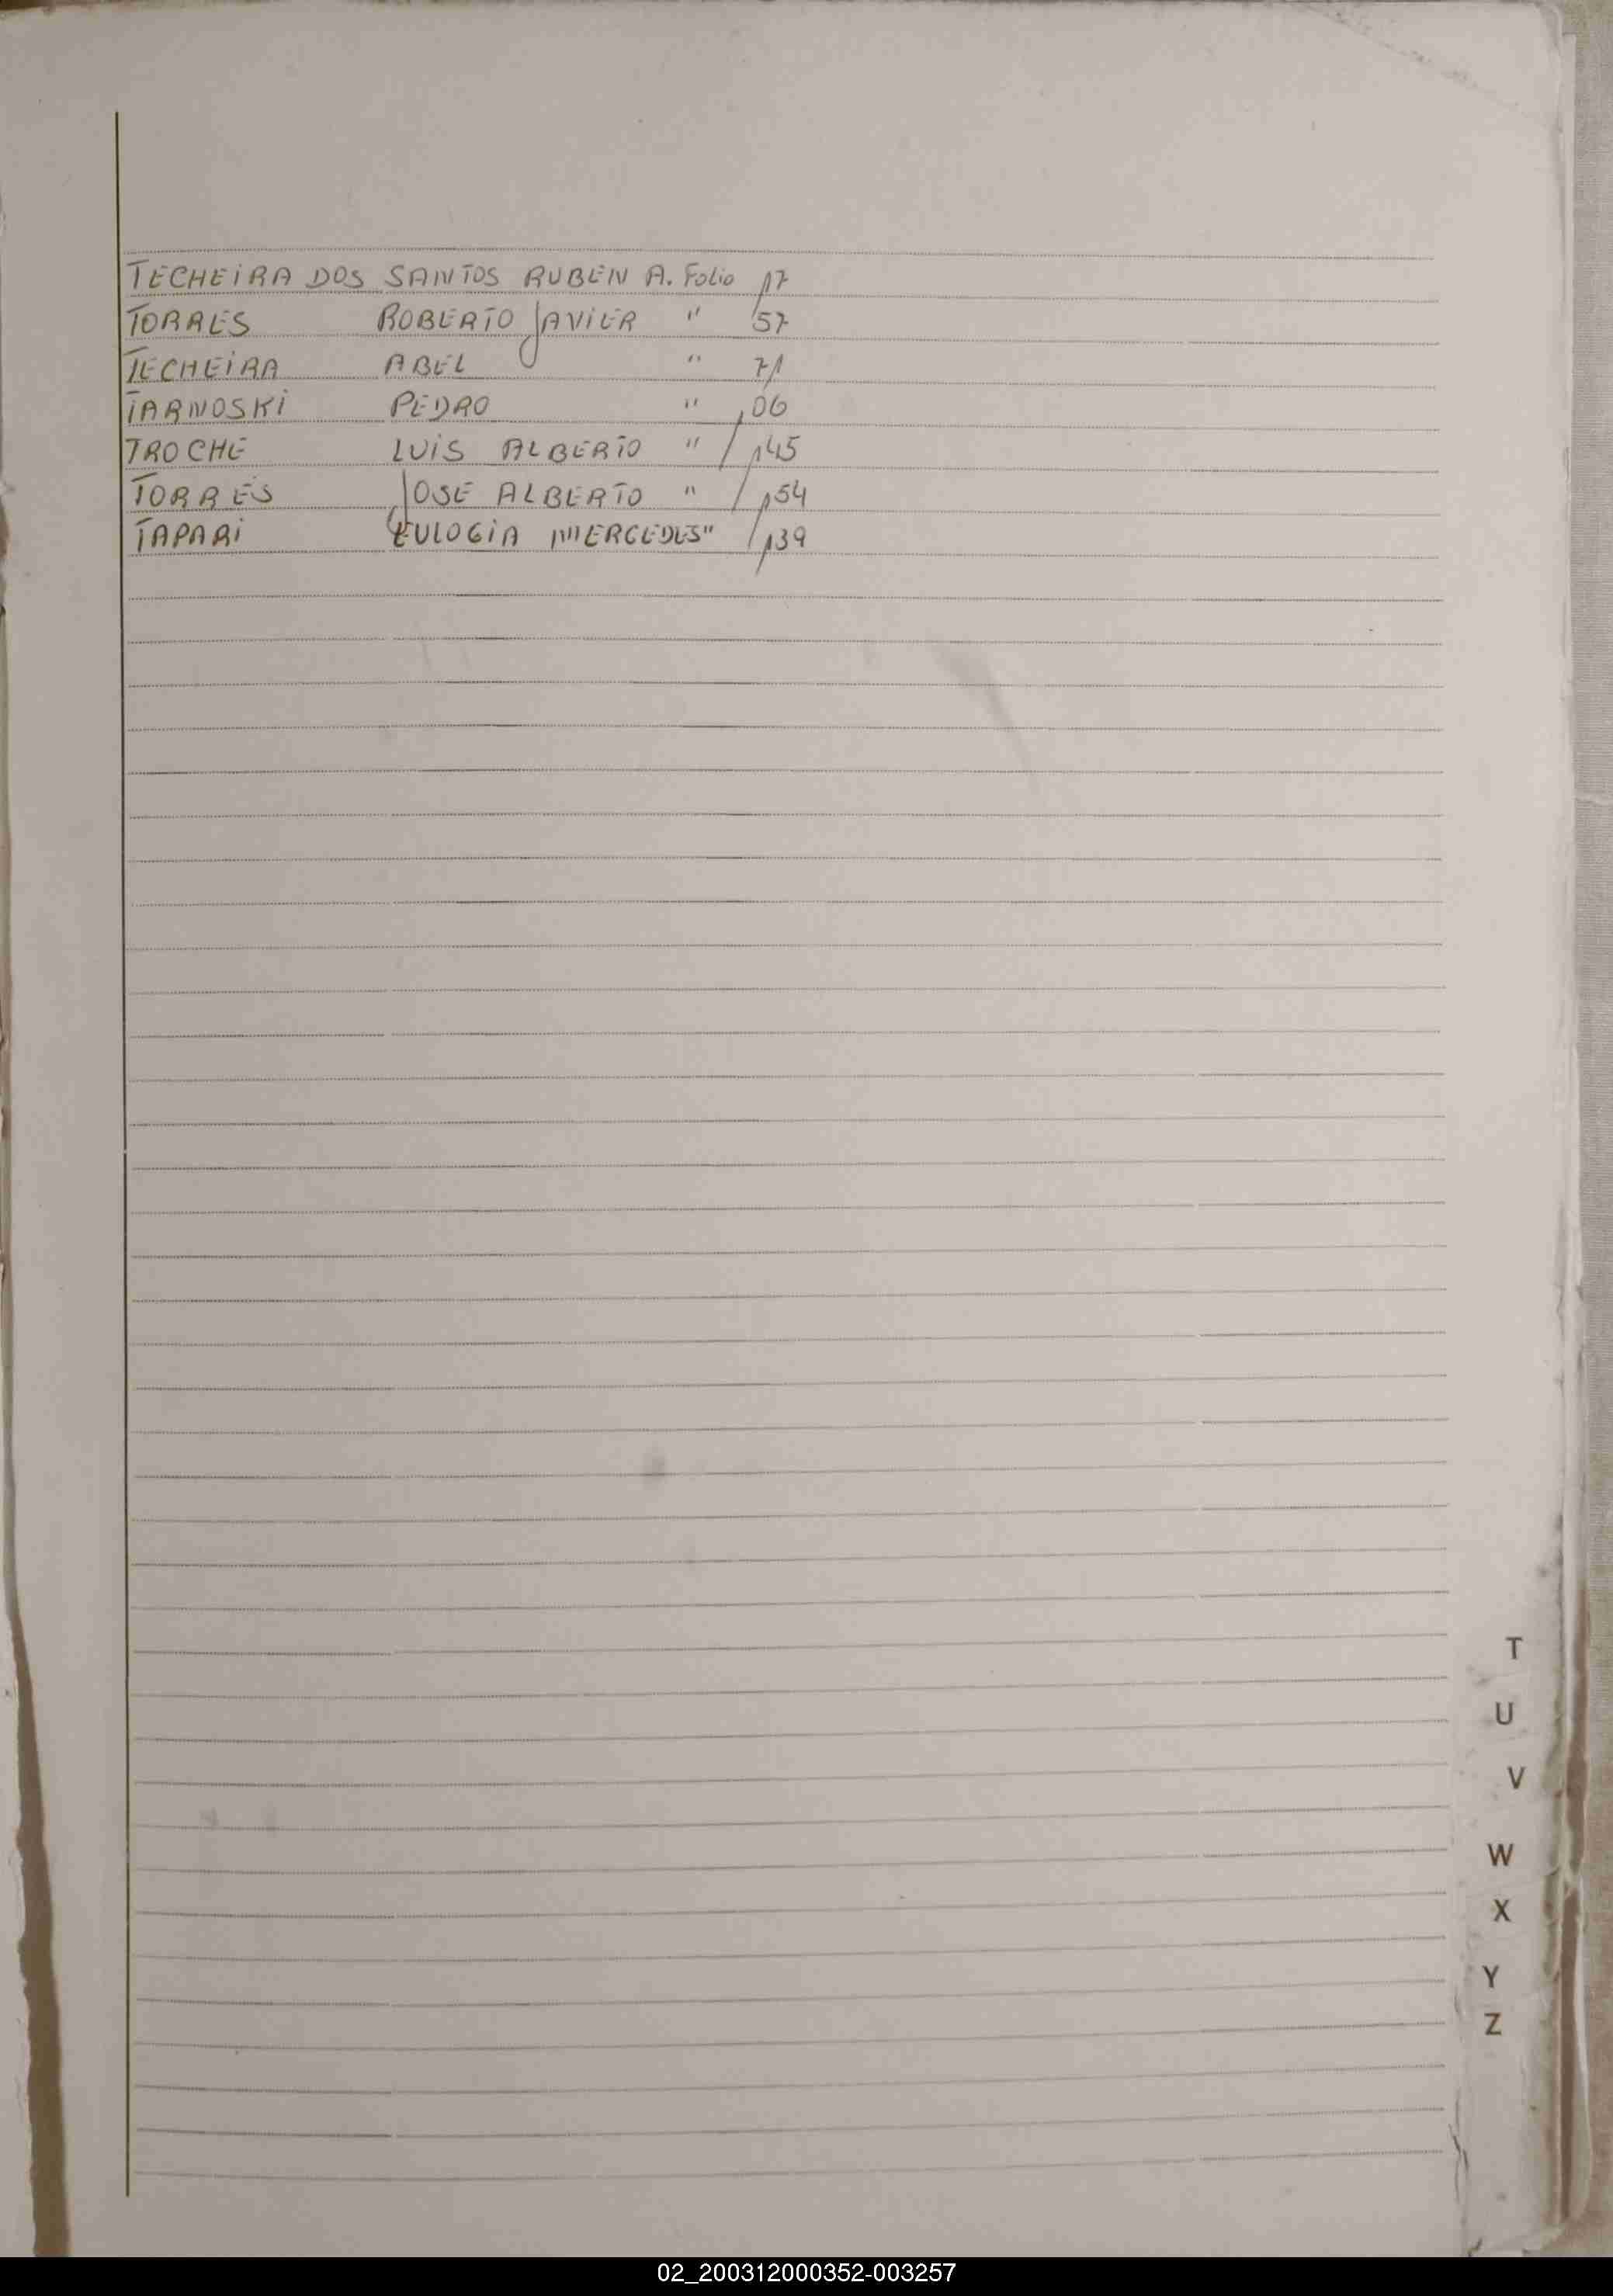 TECHEIRA DOS SANTOS RUBEN A. Folio 17
TORRES ROBERTO JAVIER " 57
TECHEIRA ABEL " 71
TARNOSKI PEDRO " 106
TROCHE LUIS ALBERTO " 145
TORRES JOSE ALBERTO " 154
TAPARI EULOGIA MERCEDES " 139
T
U
V
W
X
Y
Z
02_200312000352-003257